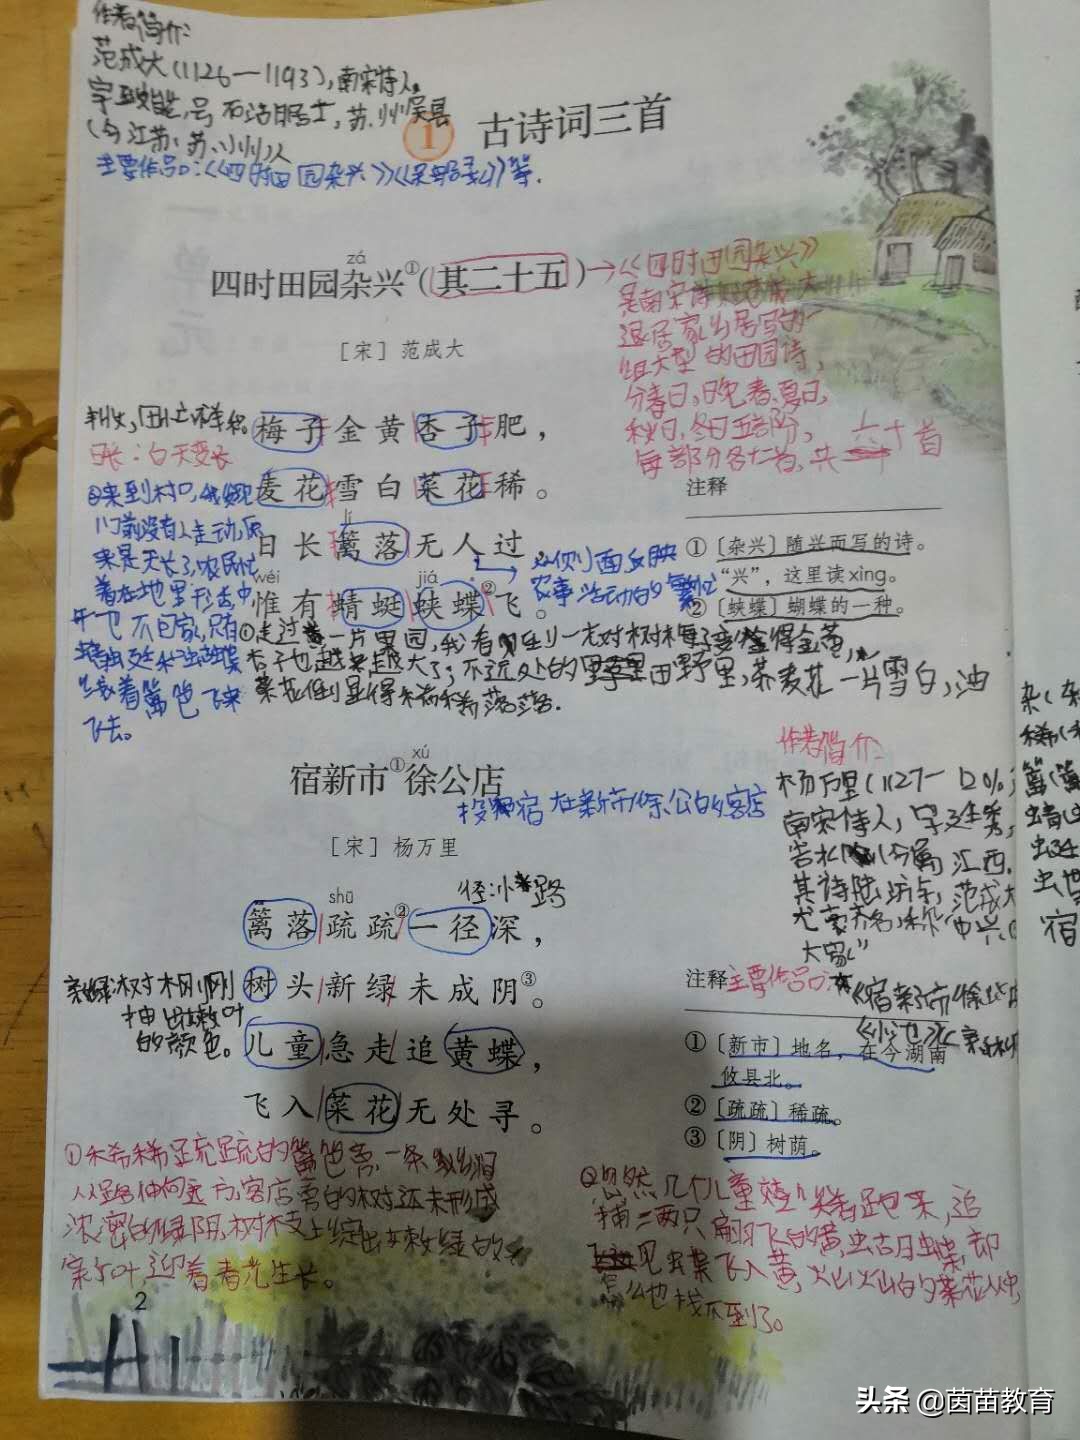 作者简介:
范成大(1126—1193),南宋诗人。
字至能,号石湖居士,苏州吴县
(今江苏苏州)人
主要作品:《四时田园杂兴》等.
1 古诗词三首
zá
四时田园杂兴①(其二十五)→《四时田园杂兴》
是南宋诗人范成大
退居家乡后写的一
组大型的田园诗,
分春日,晚春,夏日,
秋日,冬日五部分,
每部分各十二首,共六十首
[宋] 范成大
梅子金黄杏子肥,
麦花雪白菜花稀。
lí
日长篱落无人过
wéi jiá
惟有蜻蜓蛱蝶②飞。
日长:白天变长
②来到村口,我发现
门前没有人走动,原
来是天长了,农民忙
着在地里干活,中
午也不回家,只有
蜻蜓和蝴蝶
绕着篱笆飞来
飞去。
从侧面反映
农事活动的繁忙
①走过一片果园,我看到一树树梅子变得金黄,
杏子也越来越大了;不远处的田野里,荞麦花一片雪白,油
菜花倒显得稀稀落落.
注释
①[杂兴]随兴而写的诗。
“兴”,这里读xìng。
②[蛱蝶]蝴蝶的一种。
xú
宿新市①徐公店
投宿在新市徐公的客店
[宋] 杨万里
径:小路
shū
篱落疏疏②一径深,
树头新绿未成阴③。
儿童急走追黄蝶,
飞入菜花无处寻。
新绿:树木刚刚
抽出嫩叶
的颜色。
作者简介:
杨万里(1127—1206)
南宋诗人,字廷秀,
吉水人(今属江西.
其诗与陆游,范成大
尤袤齐名,称“中兴四
大家”
注释
主要作品:
《宿新市徐公店
《小池》
①[新市]地名,在今湖南
攸县北。
②[疏疏]稀疏。
③[阴]树荫。
①稀稀疏疏的篱笆旁,一条
小路伸向远方,客店旁的树还未形成
浓密的绿阴,树枝上绽出嫩绿的
新叶,迎着春光生长。
②忽然几个儿童嬉笑着跑来,追
捕一两只翩飞的黄蝴蝶,却
见蝴蝶飞入黄灿灿的菜花丛中,
怎么也找不到了。
2
头条 @茵苗教育
杂(
稀(
篱(
宿